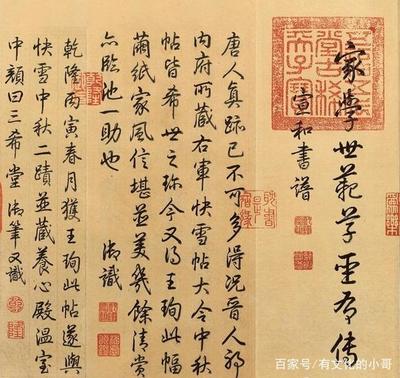 家學世範草聖有傳
宣和書譜
五福五代堂古稀天子寶
唐人真跡已不可多得況晉人耶
內府所藏右軍快雪帖大令中秋
帖皆希世之珍今又得王珣此幅
繭紙家風信堪並美幾餘清賞
亦臨池一助也 御識
乾隆丙寅春月獲王珣此帖遂與
快雪中秋二蹟並藏養心殿溫室
中顏曰三希堂御筆又識
百家号/有文化的小哥